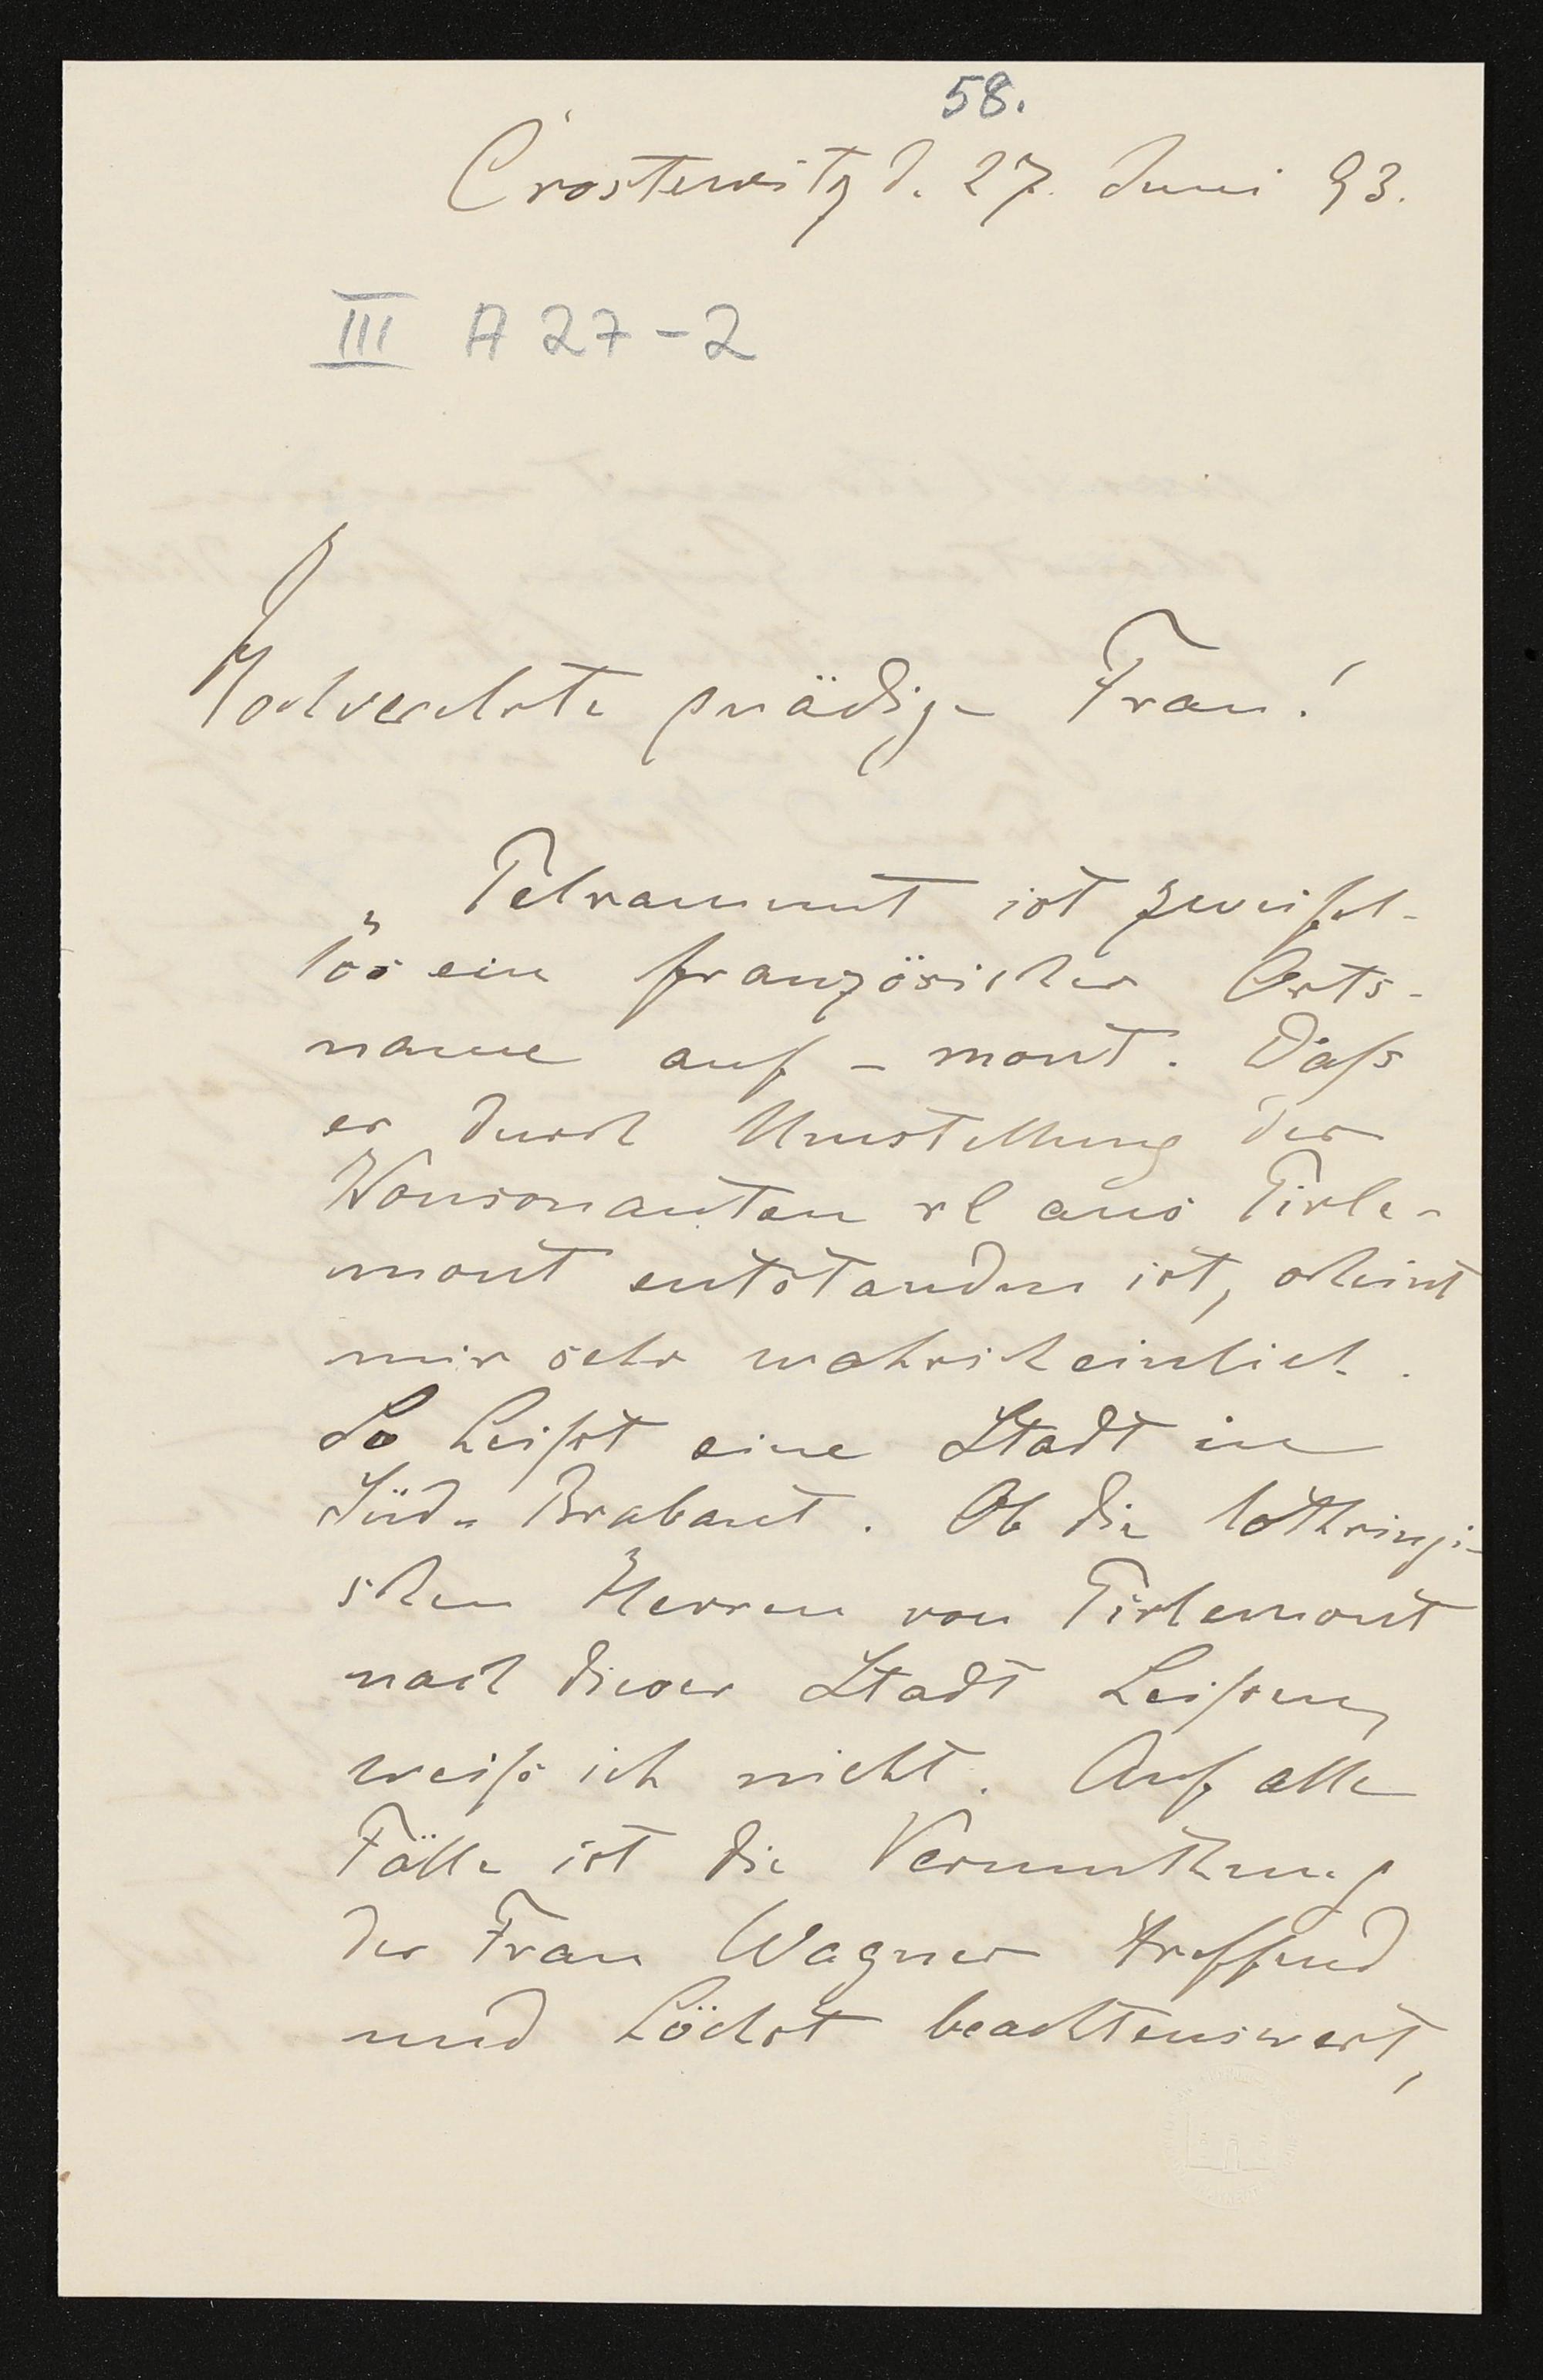 58.
Crostewitz d. 27. Juni 93.
III A 27-2
Hochverehrte gnädige Frau!
„Telramunt ist zweifel-
los ein französischer Orts-
name auf - mont. Daß
er durch Umstellung der
Konsonanten rl aus Tirle-
mont entstanden ist, scheint
mir sehr wahrscheinlich.
So heißt eine Stadt in
Süd-Brabant. Ob die lothringi-
schen Herren von Tirlemont
nach dieser Stadt heißen,
weiß ich nicht. Auf alle
Fälle ist die Vermuthung
der Frau Wagner treffend
und höchst beachtenswert,